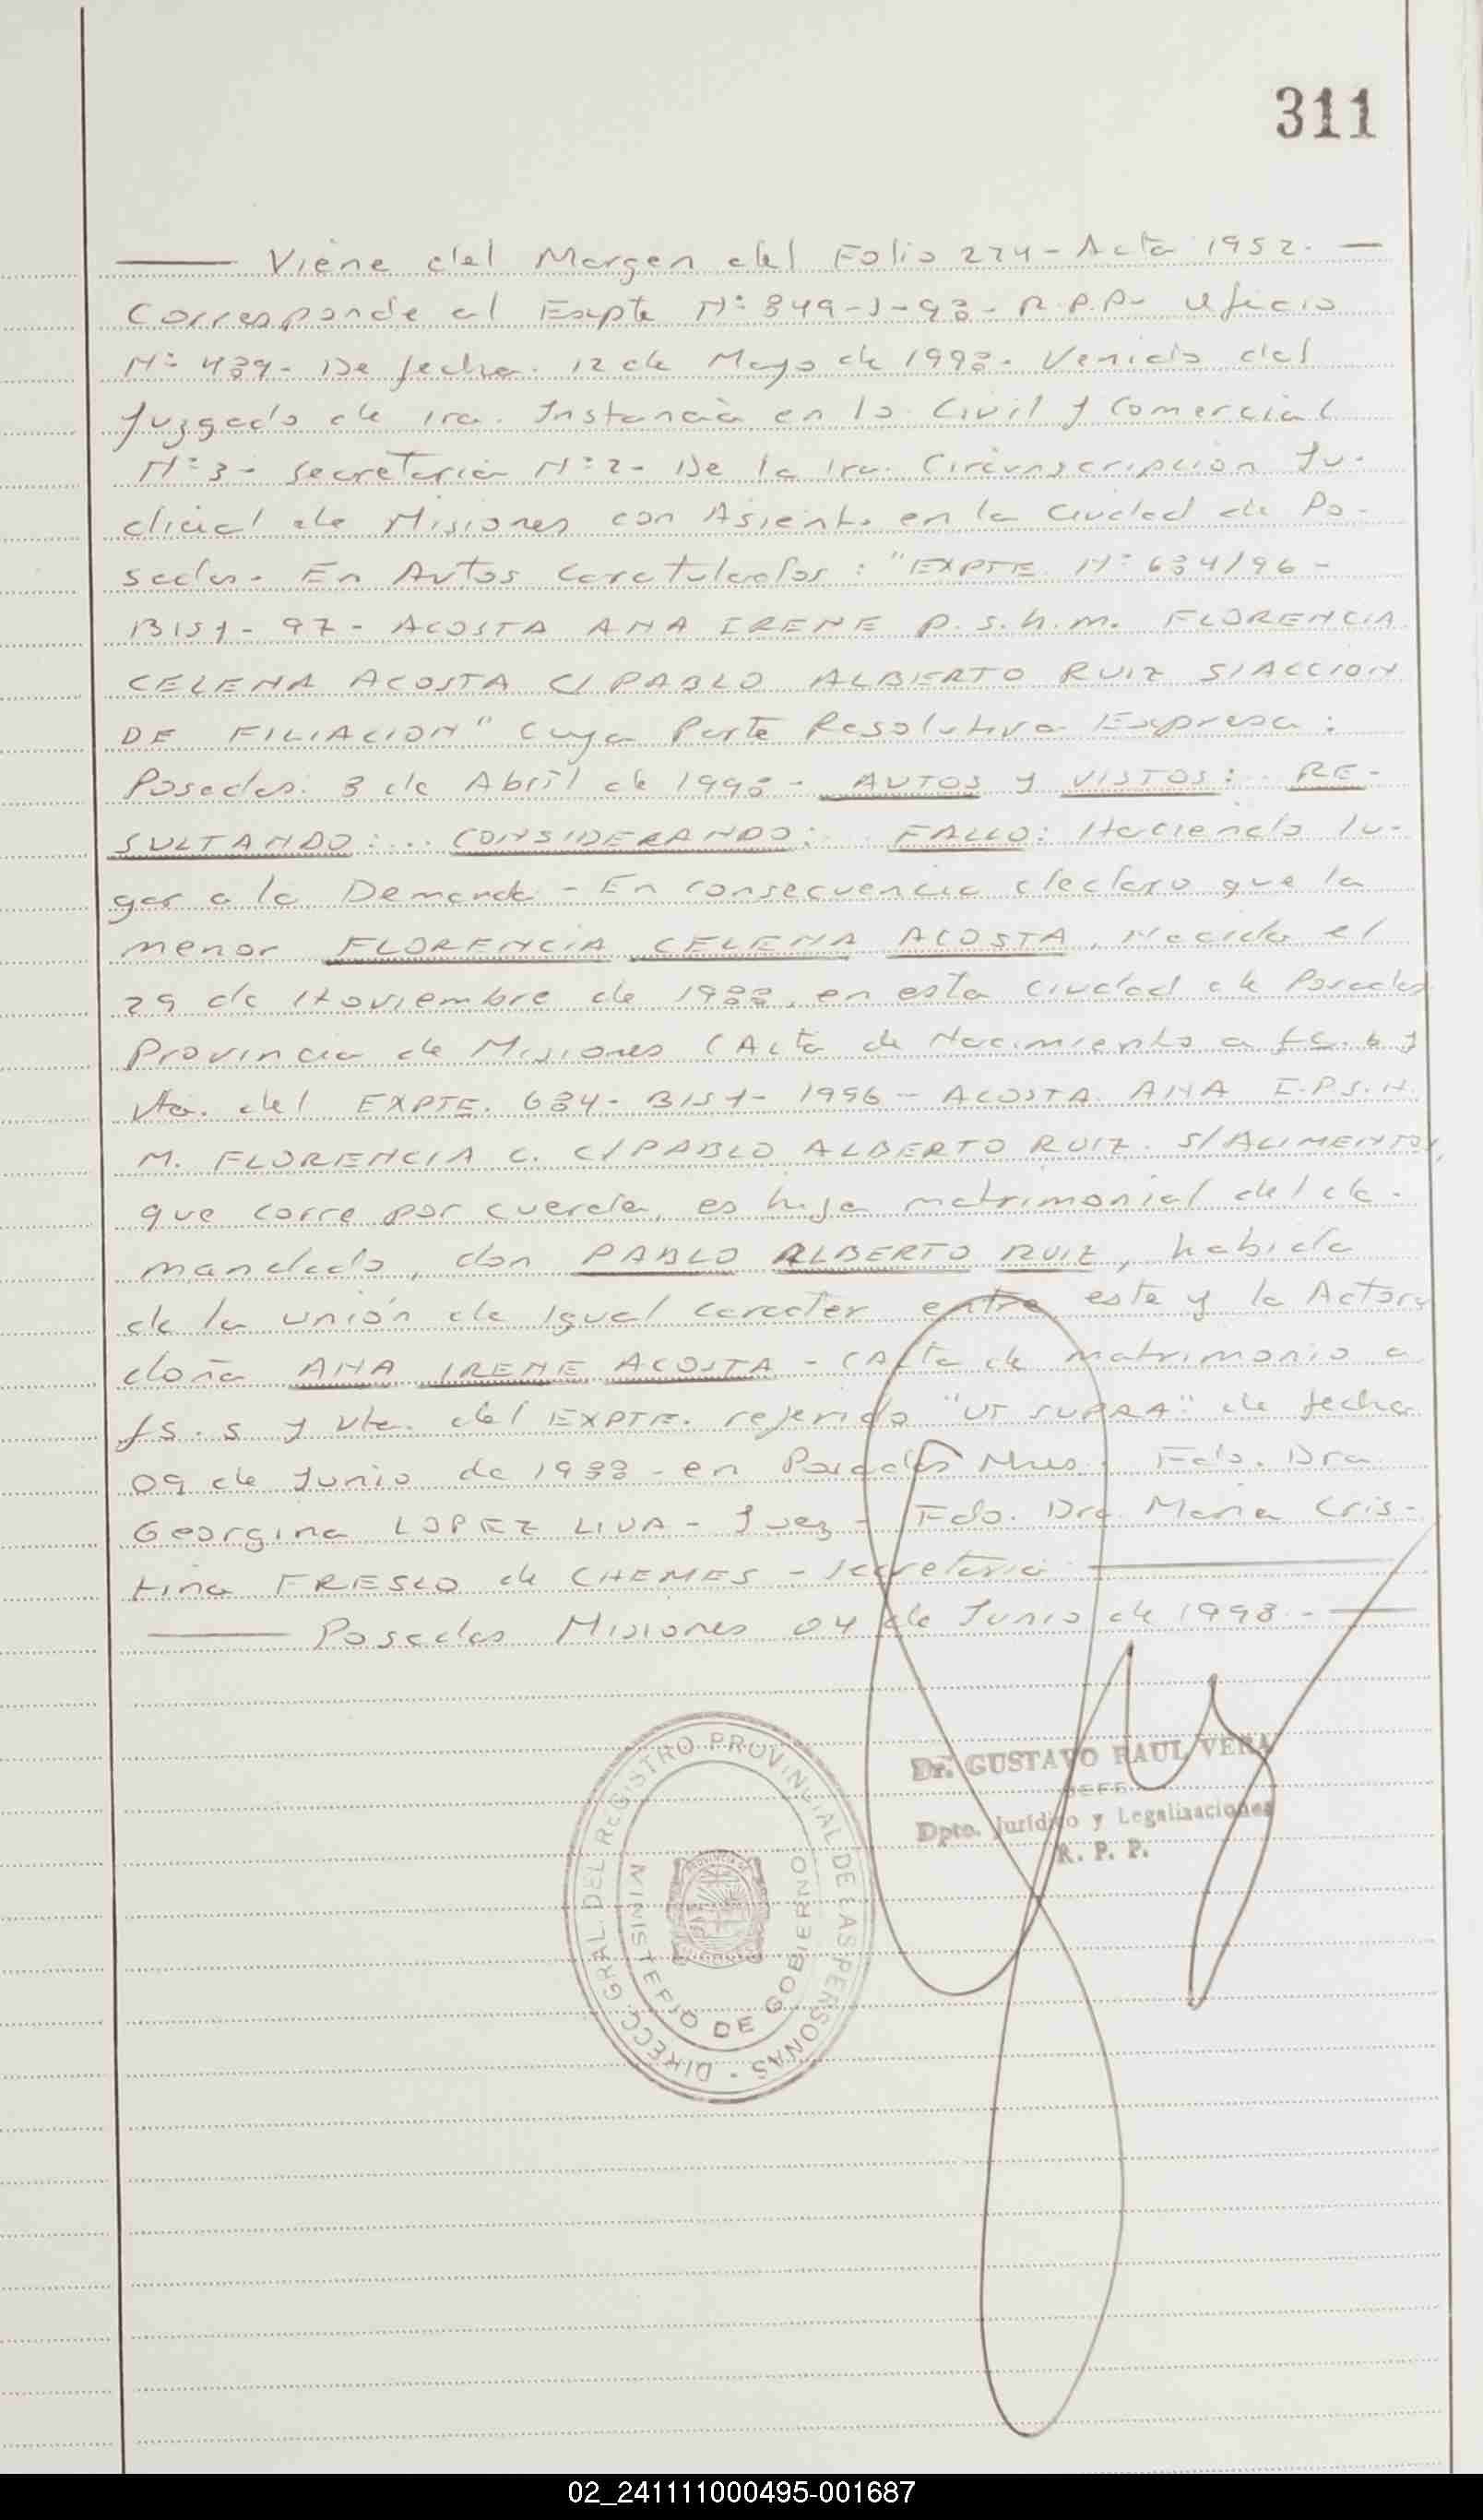 311
Viene del Margen del Folio 274 - Acta 1952. -
Corresponde al Expte Nº 849-J-98- R.P.P- Oficio
Nº 489- De fecha. 12 de Mayo de 1998. Venido del
Juzgado de 1ra. Instancia en lo Civil y Comercial
Nº 3- Secretaria Nº 2- De la 1ra. Circunscripcion Ju-
dicial de Misiones con Asiento en la Ciudad de Po-
sadas. En Autos Caratulados: "EXPTE Nº 684/96 -
BIS1- 97- ACOSTA ANA IRENE P.S.h.m. FLORENCIA
CELENA ACOSTA C/ PABLO ALBERTO RUIZ S/ACCION
DE FILIACION" Cuya Parte Resolutiva Expresa:
Posadas. 3 de Abril de 1998- AUTOS y VISTOS: .. RE-
SULTANDO: ... CONSIDERANDO: .. FALLO: Haciendo lu-
gar a la Demanda - En consecuencia declaro que la
menor FLORENCIA CELENA ACOSTA, Nacida el
29 de Noviembre de 1988, en esta ciudad de Posadas
Provincia de Misiones (Acta de Nacimiento a fs. 6 y
vta. del EXPTE. 684- BIS1- 1996- ACOSTA ANA I.P.S.H.
M. FLORENCIA C. C/PABLO ALBERTO RUIZ. S/ALIMENTOS,
que corre por cuerda, es hija matrimonial del de-
mandado, don PABLO ALBERTO RUIZ, habida
de la unión de Igual caracter entre este y la Actora
doña ANA IRENE ACOSTA - (Acta de matrimonio a
fs. 5 y vta. del EXPTE. referido "UT SUPRA" de fecha
09 de Junio de 1988 - en Posadas Mnes. Fdo. Dra
Georgina LOPEZ LIVA - Juez - Fdo. Dra Maria Cris-
tina FRESCO de CHEMES - Secretaria
Posadas Misiones 04 de Junio de 1998. -
Dr. GUSTAVO RAUL VERA
JEFE
Dpto. Jurídico y Legalizaciones
R. P. P.
DIRECC. GRAL. DEL REGISTRO PROVINCIAL DE LAS PERSONAS -
MINISTERIO DE GOBIERNO
02_241111000495-001687